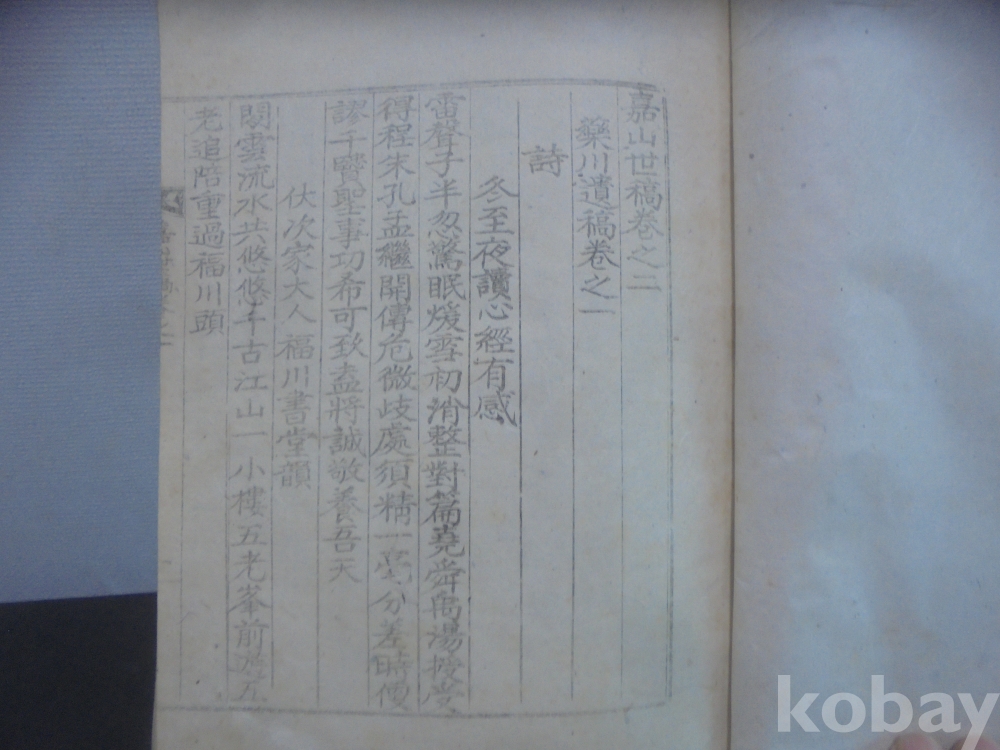 嘉山世稿卷之二
藥川遺稿卷之一
詩
冬至夜讀心經有感
雷聲子半忽驚眠煖雪初消整對篇堯舜禹湯授受
得程朱孔孟繼開傳危微歧處須精一毫分差時便
謬千賢聖事功希可致盍將誠敬養吾天
伏次家大人福川書堂韻
閑雲流水共悠悠千古江山一小樓五老峯前遊五
老追陪重過福川頭
kobay